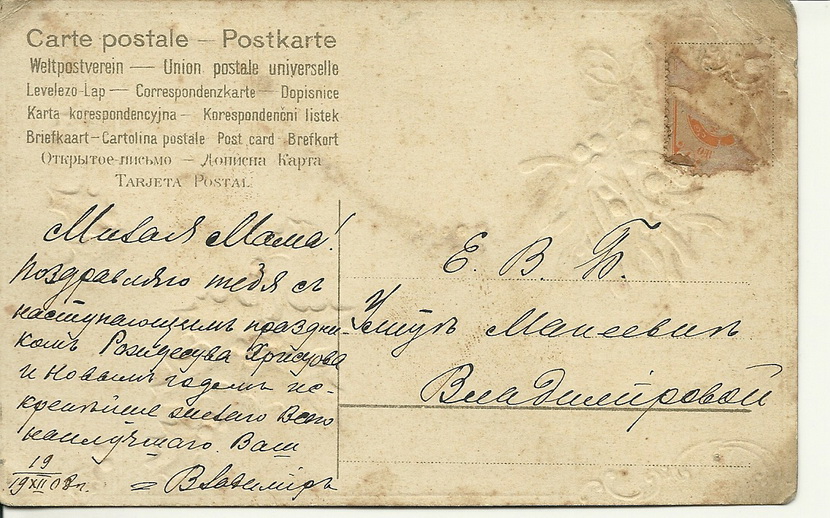 Carte postale — Postkarte
Weltpostverein — Union postale universelle
Levelezo-Lap — Correspondenzkarte — Dopisnice
Karta korespondencyjna — Korespondenčni listek
Briefkaart — Cartolina postale Post card Brefkort
Открытое письмо — Дописна Карта
Tarjeta Postal
Милая Мама!
Поздравляю тебя съ
наступающимъ праздни-
комъ Рождества Христова
и Новымъ годомъ ис-
кренѣйше желаю всего
наилучшаго. Ваш
19 19 XII 08 г. Владиміръ
Е. В. Б.
Владиміровой